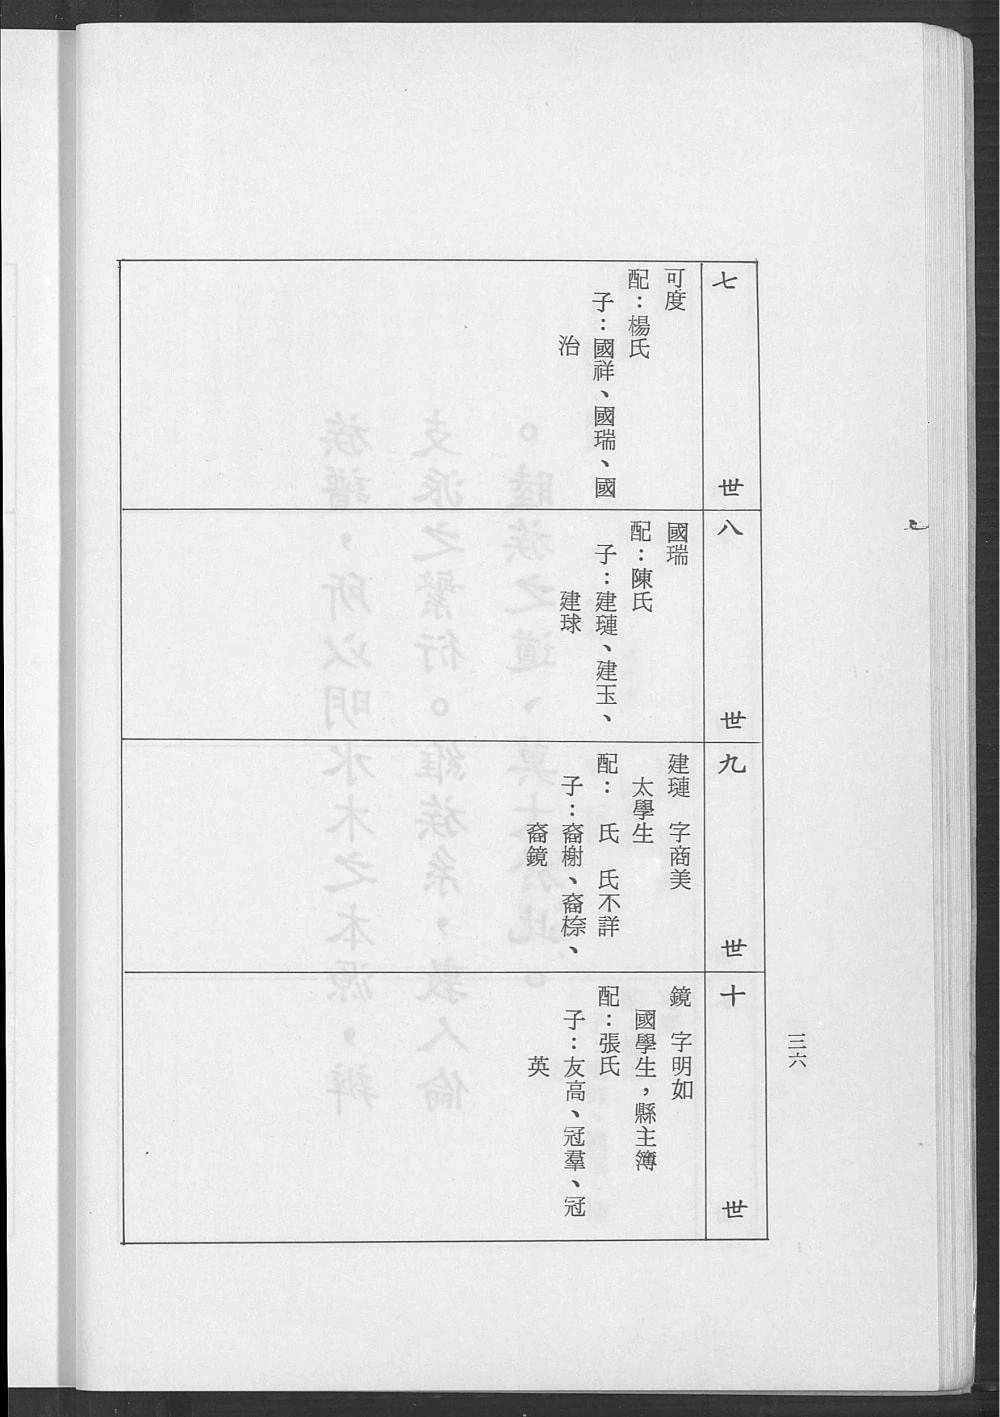 七世
可度
配：楊氏
子：國祥、國瑞、國
治
八世
國瑞
配：陳氏
子：建璉、建玉、
建球
九世
建璉　字商美
太學生
配：　氏　氏不詳
子：裔榭、裔㮏、
裔鏡
十世
鏡　字明如
國學生，縣主簿
配：張氏
子：友高、冠羣、冠
英
三六